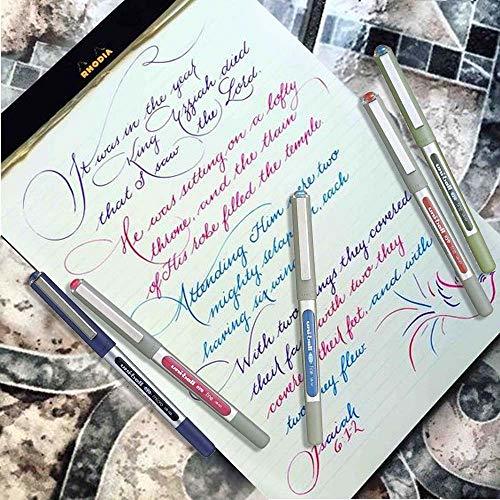 RHODIA
It was in the year
King Uzziah died
that I saw the Lord.
He was sitting on a lofty
throne, and the train
of His robe filled the temple.
Attending Him were two
mighty seraphim, each
having six wings
With two wings they covered
their faces, with two they
covered their feet, and with
two they flew.
Isaiah
6:1,2
uni-ball eye micro
uni-ball eye fine
uni-ball eye fine
uni-ball eye
uni-ball eye